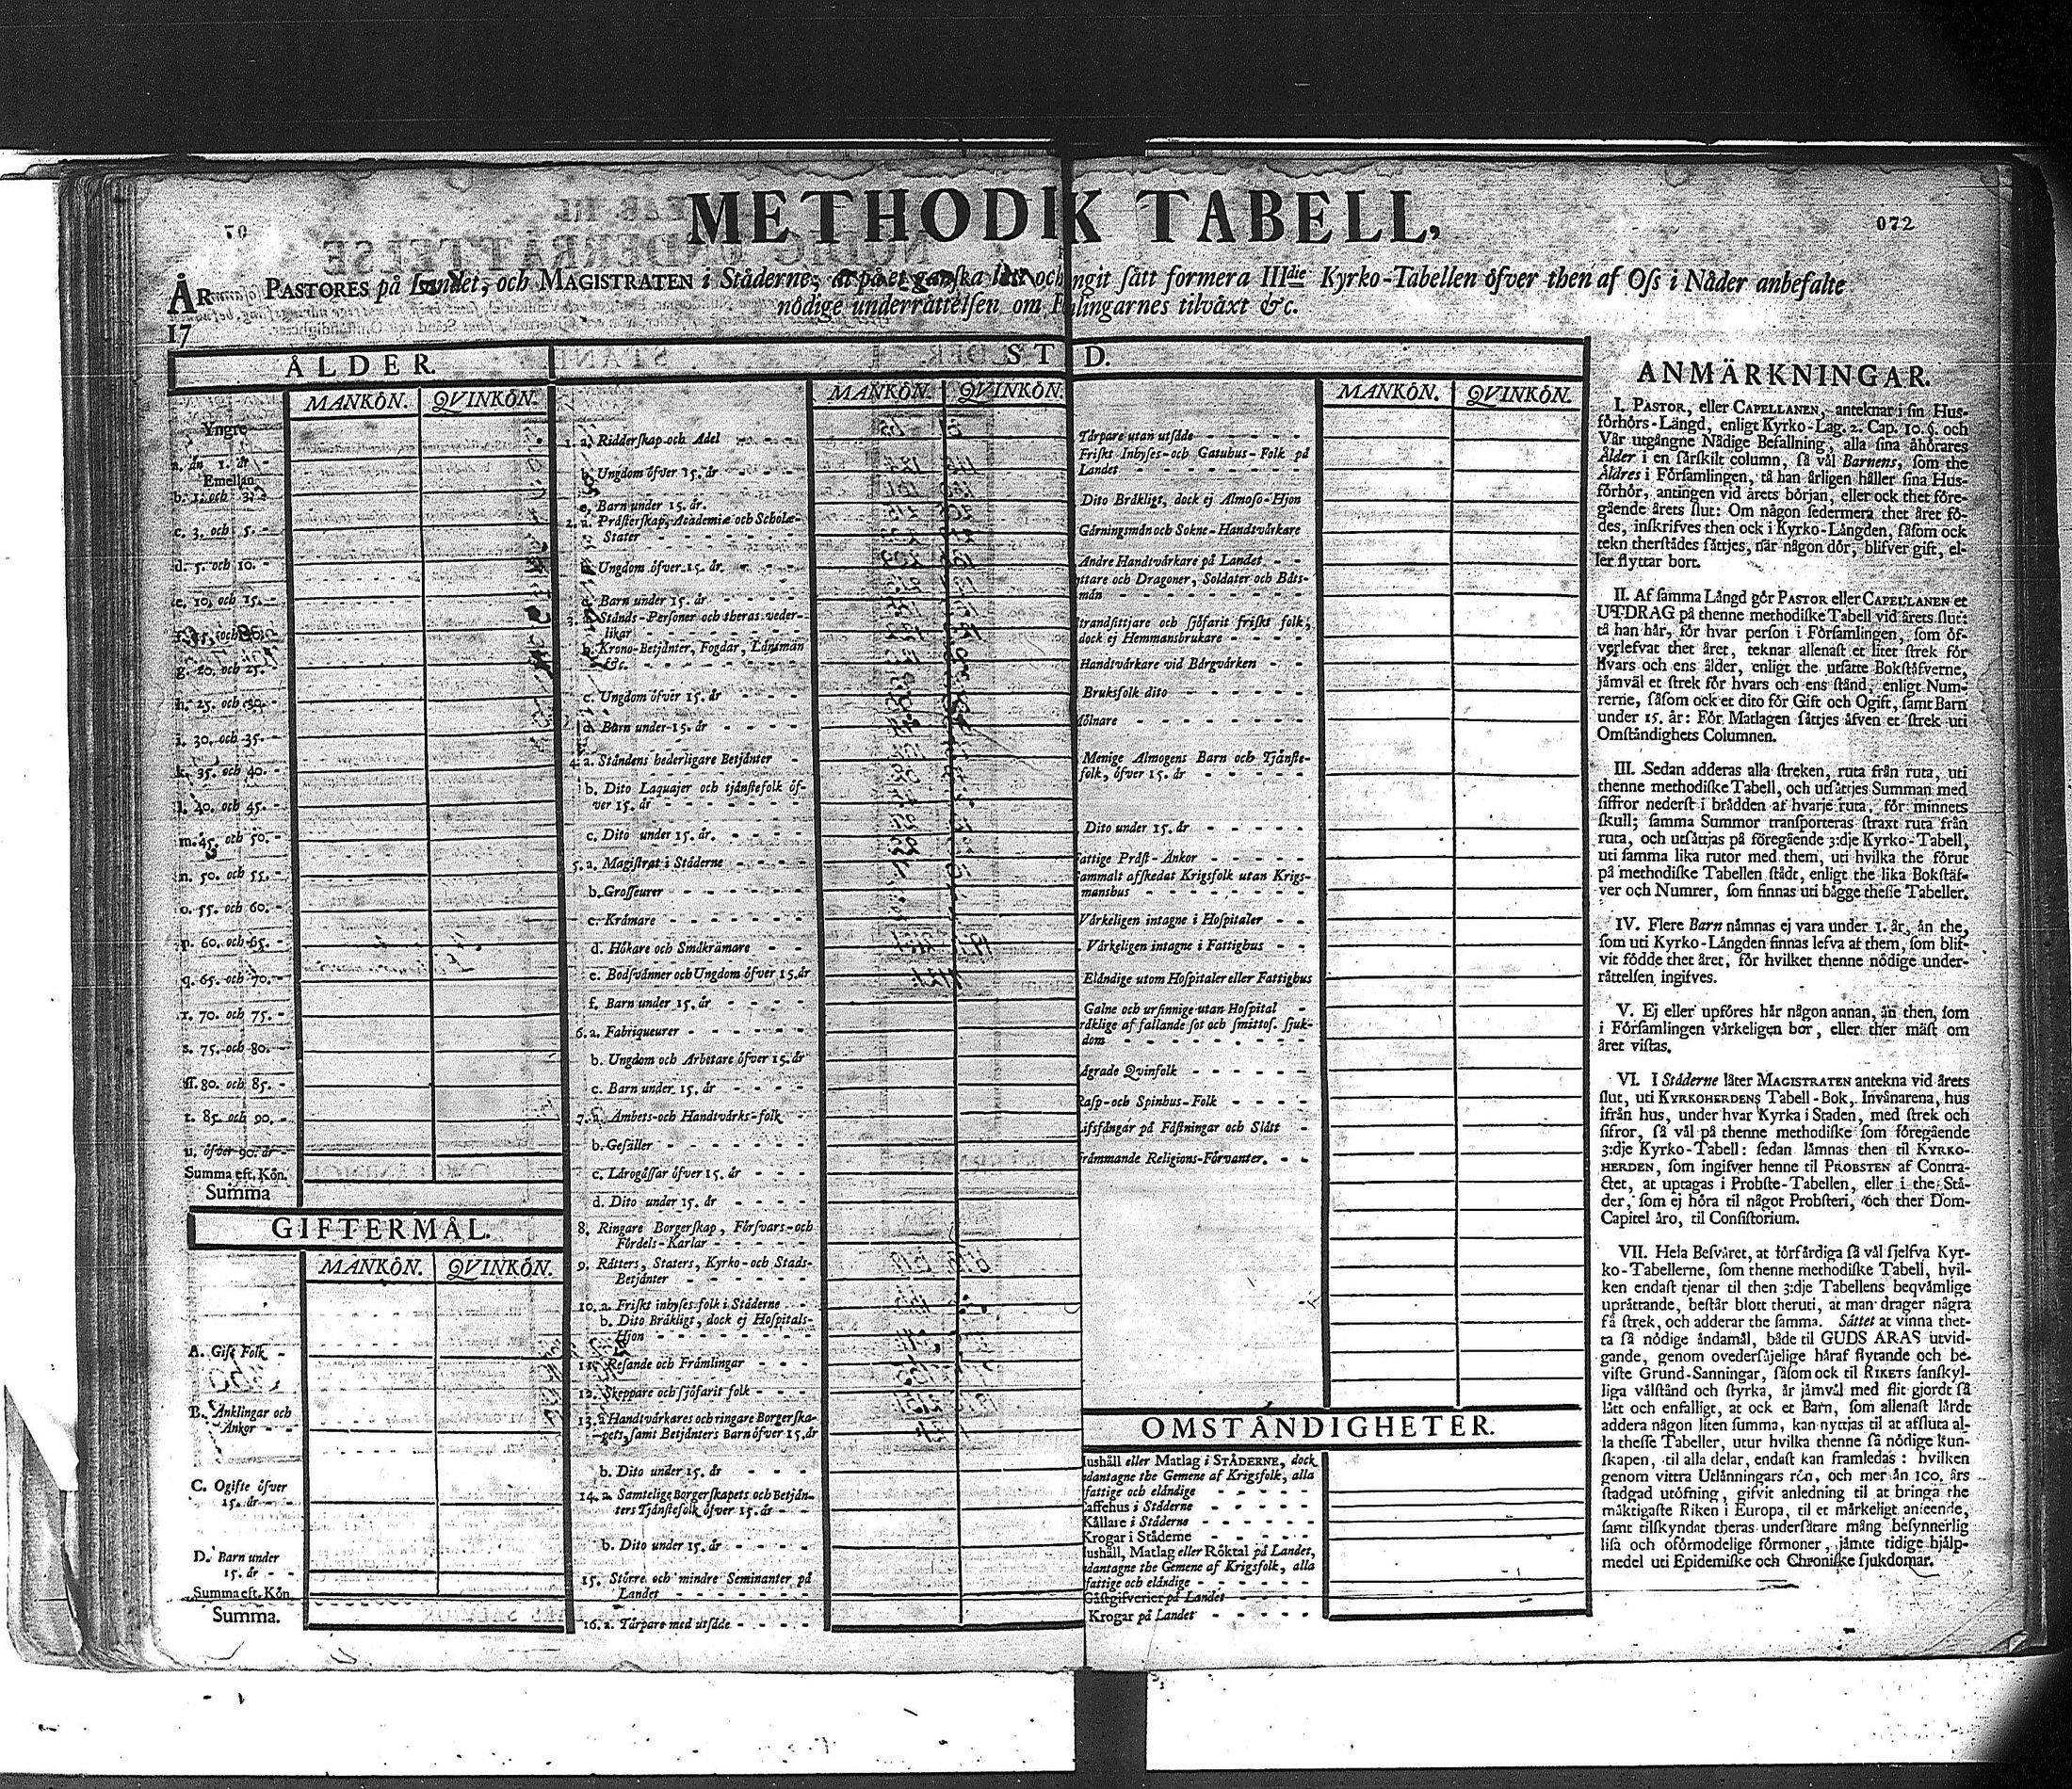 METHODIK TABELL,
70
072
ÅR
17
PASTORES på Landet, och MAGISTRATEN i Ståderne, at på et ganska lått och ringit sått formera IIIdie Kyrko-Tabellen ôfver then af Oss i Nåder anbefalte
nôdige underråttelsen om Folingarnes tilvåxt &c.
ÅLDER.
MANKÔN. QVINKÔN.
Yngre
a. ån 1. år -
Emellan
b. 1. och 3. -
c. 3. och 5. -
d. 5. och 10. -
e. 10. och 15. -
g. 20. och 25. -
h. 25. och 30. -
i. 30. och 35. -
k. 35. och 40. -
l. 40. och 45. -
m. 45. och 50. -
n. 50. och 55. -
o. 55. och 60. -
p. 60. och 65. -
q. 65. och 70. -
r. 70. och 75. -
s. 75. och 80. -
ſſ. 80. och 85. -
t. 85. och 90. -
u. ôfver 90. år -
Summa eft. Kôn.
Summa
GIFTERMÅL.
MANKÔN. QVINKÔN.
A. Gift Folk -
B. Ånklingar och
Ånkor - -
C. Ogifte ôfver
15. år - -
D. Barn under
15. år - -
Summa eft. Kôn.
Summa.
ST D.
MANKÔN. QVINKÔN.
1. a. Ridderskap och Adel
b. Ungdom ôfver 15. år
c. Barn under 15. år.
2. a. Pråsterskap, Academiæ och Scholæ-
Stater
Ungdom ôfver 15. år
Barn under 15. år
Stånds-Personer och theras veder-
likar
b. Krono-Betjånter, Fogdar, Lånsmån
&c.
c. Ungdom ôfver 15. år
d. Barn under 15. år
4. a. Ståndens hederligare Betjånter
b. Dito Laquajer och tjånstefolk ôf-
ver 15. år
c. Dito under 15. år.
5. a. Magistrat i Ståderne
b. Grosseurer
c. Kråmare
d. Hôkare och Småkråmare
e. Bodsvånner och Ungdom ôfver 15. år
f. Barn under 15. år
6. a. Fabriqueurer
b. Ungdom och Arbetare ôfver 15. år
c. Barn under 15. år
7. a. Åmbets- och Handtvårks-folk
b. Gesåller
c. Lårogåssar ôfver 15. år
d. Dito under 15. år
8. Ringare Borgerskap, Fôrsvars- och
Fôrdels-Karlar
9. Råtters, Staters, Kyrko- och Stads-
Betjånter
10. a. Friskt inhyses-folk i Ståderne
b. Dito Bråkligt, dock ej Hospitals-
Hjon
11. Resande och Fråmlingar
12. Skeppare och sjôfarit folk
13. a Handtvårkares och ringare Borgerska-
pets, samt Betjånters Barn ôfver 15. år
b. Dito under 15. år
14. a. Samtelige Borgerskapets och Betjån-
ters Tjånstefolk ôfver 15. år
b. Dito under 15. år
15. Stôrre och mindre Seminanter på
Landet
16. a. Tårpare med utsåde
MANKÔN. QVINKÔN.
Tårpare utan utsåde
Friskt Inhyses- och Gatuhus-Folk på
Landet
Dito Bråkligt, dock ej Almoso-Hjon
Gårningsmån och Sokne-Handtvårkare
Andre Handtvårkare på Landet
ttare och Dragoner, Soldater och Båts-
mån
trandsittjare och sjôfarit friskt folk,
dock ej Hemmansbrukare
Handtvårkare vid Bårgvårken
Bruksfolk dito
Môlnare
Menige Almogens Barn och Tjånste-
folk, ôfver 15. år
Dito under 15. år
Fattige Pråst-Ånkor
ammalt afskedat Krigsfolk utan Krigs-
manshus
Vårkeligen intagne i Hospitaler
Vårkeligen intagne i Fattighus
Elåndige utom Hospitaler eller Fattighus
Galne och ursinnige utan Hospital
råklige af fallande sot och smittos. sjuk-
dom
ågrade Qvinfolk
Rasp- och Spinhus-Folk
ifsfångar på Fåstningar och Slått
råmmande Religions-Fôrvanter.
OMSTÅNDIGHETER.
ushåll eller Matlag i STÅDERNE, dock
dantagne the Gemene af Krigsfolk, alla
fattige och elåndige
Caffehus i Ståderne
Kållare i Ståderne
Krogar i Ståderne
ushåll, Matlag eller Rôktal på Landet,
dantagne the Gemene af Krigsfolk, alla
fattige och elåndige
Gåstgifverier på Landet
Krogar på Landet
ANMÄRKNINGAR.
I. PASTOR, eller CAPELLANEN, anteknar i sin Hus-
fôrhôrs-Långd, enligt Kyrko-Lag. 2. Cap. 10. §. och
Vår utgångne Nådige Befallning, alla sina åhôrares
Ålder i en sårskilt column, så vål Barnens, som the
Åldres i Fôrsamlingen, tå han årligen håller sina Hus-
fôrhôr, antingen vid årets bôrjan, eller ock thet fôre-
gående årets slut: Om någon sedermera thet året fô-
des, inskrifves then ock i Kyrko-Långden, såsom ock
tekn therstådes såttjes, når någon dôr, blifver gift, el-
ler flyttar bort.
II. Af samma Långd gôr PASTOR eller CAPELLANEN et
UTDRAG på thenne methodiske Tabell vid årets slut:
tå han hår, fôr hvar person i Fôrsamlingen, som ôf-
verlefvat thet året, teknar allenast et litet strek fôr
hvars och ens ålder, enligt the utsatte Bokståfverne,
jåmvål et strek fôr hvars och ens stånd, enligt Num-
rerne, såsom ock et dito fôr Gift och Ogift, samt Barn
under 15. år: Fôr Matlagen såttjes åfven et strek uti
Omståndighets Columnen.
III. Sedan adderas alla streken, ruta från ruta, uti
thenne methodiske Tabell, och utsåttjes Summan med
siffror nederst i brådden af hvarje ruta, fôr minnets
skull; samma Summor transporteras straxt ruta från
ruta, och utsåttjas på fôregående 3:dje Kyrko-Tabell,
uti samma lika rutor med them, uti hvilka the fôrut
på methodiske Tabellen stådt, enligt the lika Bokståf-
ver och Numrer, som finnas uti bågge thesse Tabeller.
IV. Flere Barn nåmnas ej vara under 1. år, ån the,
som uti Kyrko-Långden finnas lefva af them, som blif-
vit fôdde thet året, fôr hvilket thenne nôdige under-
råttelsen ingifves.
V. Ej eller upfôres hår någon annan, ån then, som
i Fôrsamlingen vårkeligen bor, eller ther måst om
året vistas.
VI. I Ståderne låter MAGISTRATEN antekna vid årets
slut, uti KYRKOHERDENS Tabell-Bok, Invånarena, hus
ifrån hus, under hvar Kyrka i Staden, med strek och
sifror, så vål på thenne methodiske som fôregående
3:dje Kyrko-Tabell: sedan låmnas then til KYRKO-
HERDEN, som ingifver henne til PROBSTEN af Contra-
ctet, at uptagas i Probste-Tabellen, eller i the Stå-
der, som ej hôra til något Probsteri, och ther Dom-
Capitel åro, til Consistorium.
VII. Hela Besvåret, at fôrfårdiga så vål sjelfva Kyr-
ko-Tabellerne, som thenne methodiske Tabell, hvil-
ken endast tjenar til then 3:dje Tabellens beqvåmlige
upråttande, består blott theruti, at man drager några
få strek, och adderar the samma. Såttet at vinna thet-
ta så nôdige åndamål, både til GUDS ÅRAS utvid-
gande, genom ovedersåjelige håraf flytande och be-
viste Grund-Sanningar, såsom ock til RIKETS fanskyl-
liga vålstånd och styrka, år jåmvål med flit gjordt så
lått och enfalligt, at ock et Barn, som allenast lårdt
addera någon liten summa, kan nyttjas til at afsluta al-
la thesse Tabeller, utur hvilka thenne så nôdige kun-
skapen, til alla delar, endast kan framledas: hvilken
genom vittra Utlånningars rôn, och mer ån 100. års
stadgad utôfning, gifvit anledning til at bringa the
måktigaste Riken i Europa, til et mårkeligt anseende,
samt tilskyndat theras undersåtare mång besynnerlig
lisa och ofôrmodelige fôrmoner, jåmte tidige hjålp-
medel uti Epidemiske och Chroniske sjukdomar.